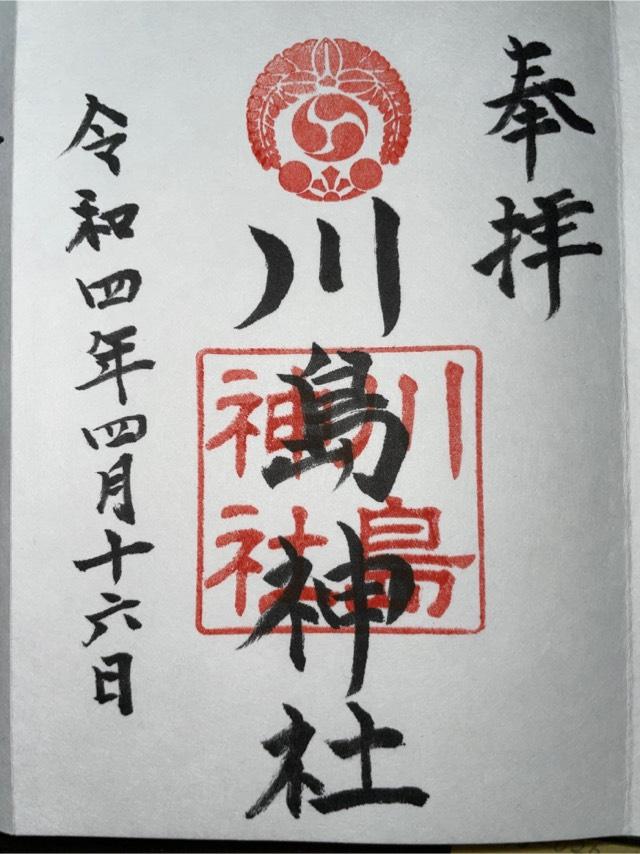 奉拝
川島神社
川島
神社
令和四年四月十六日